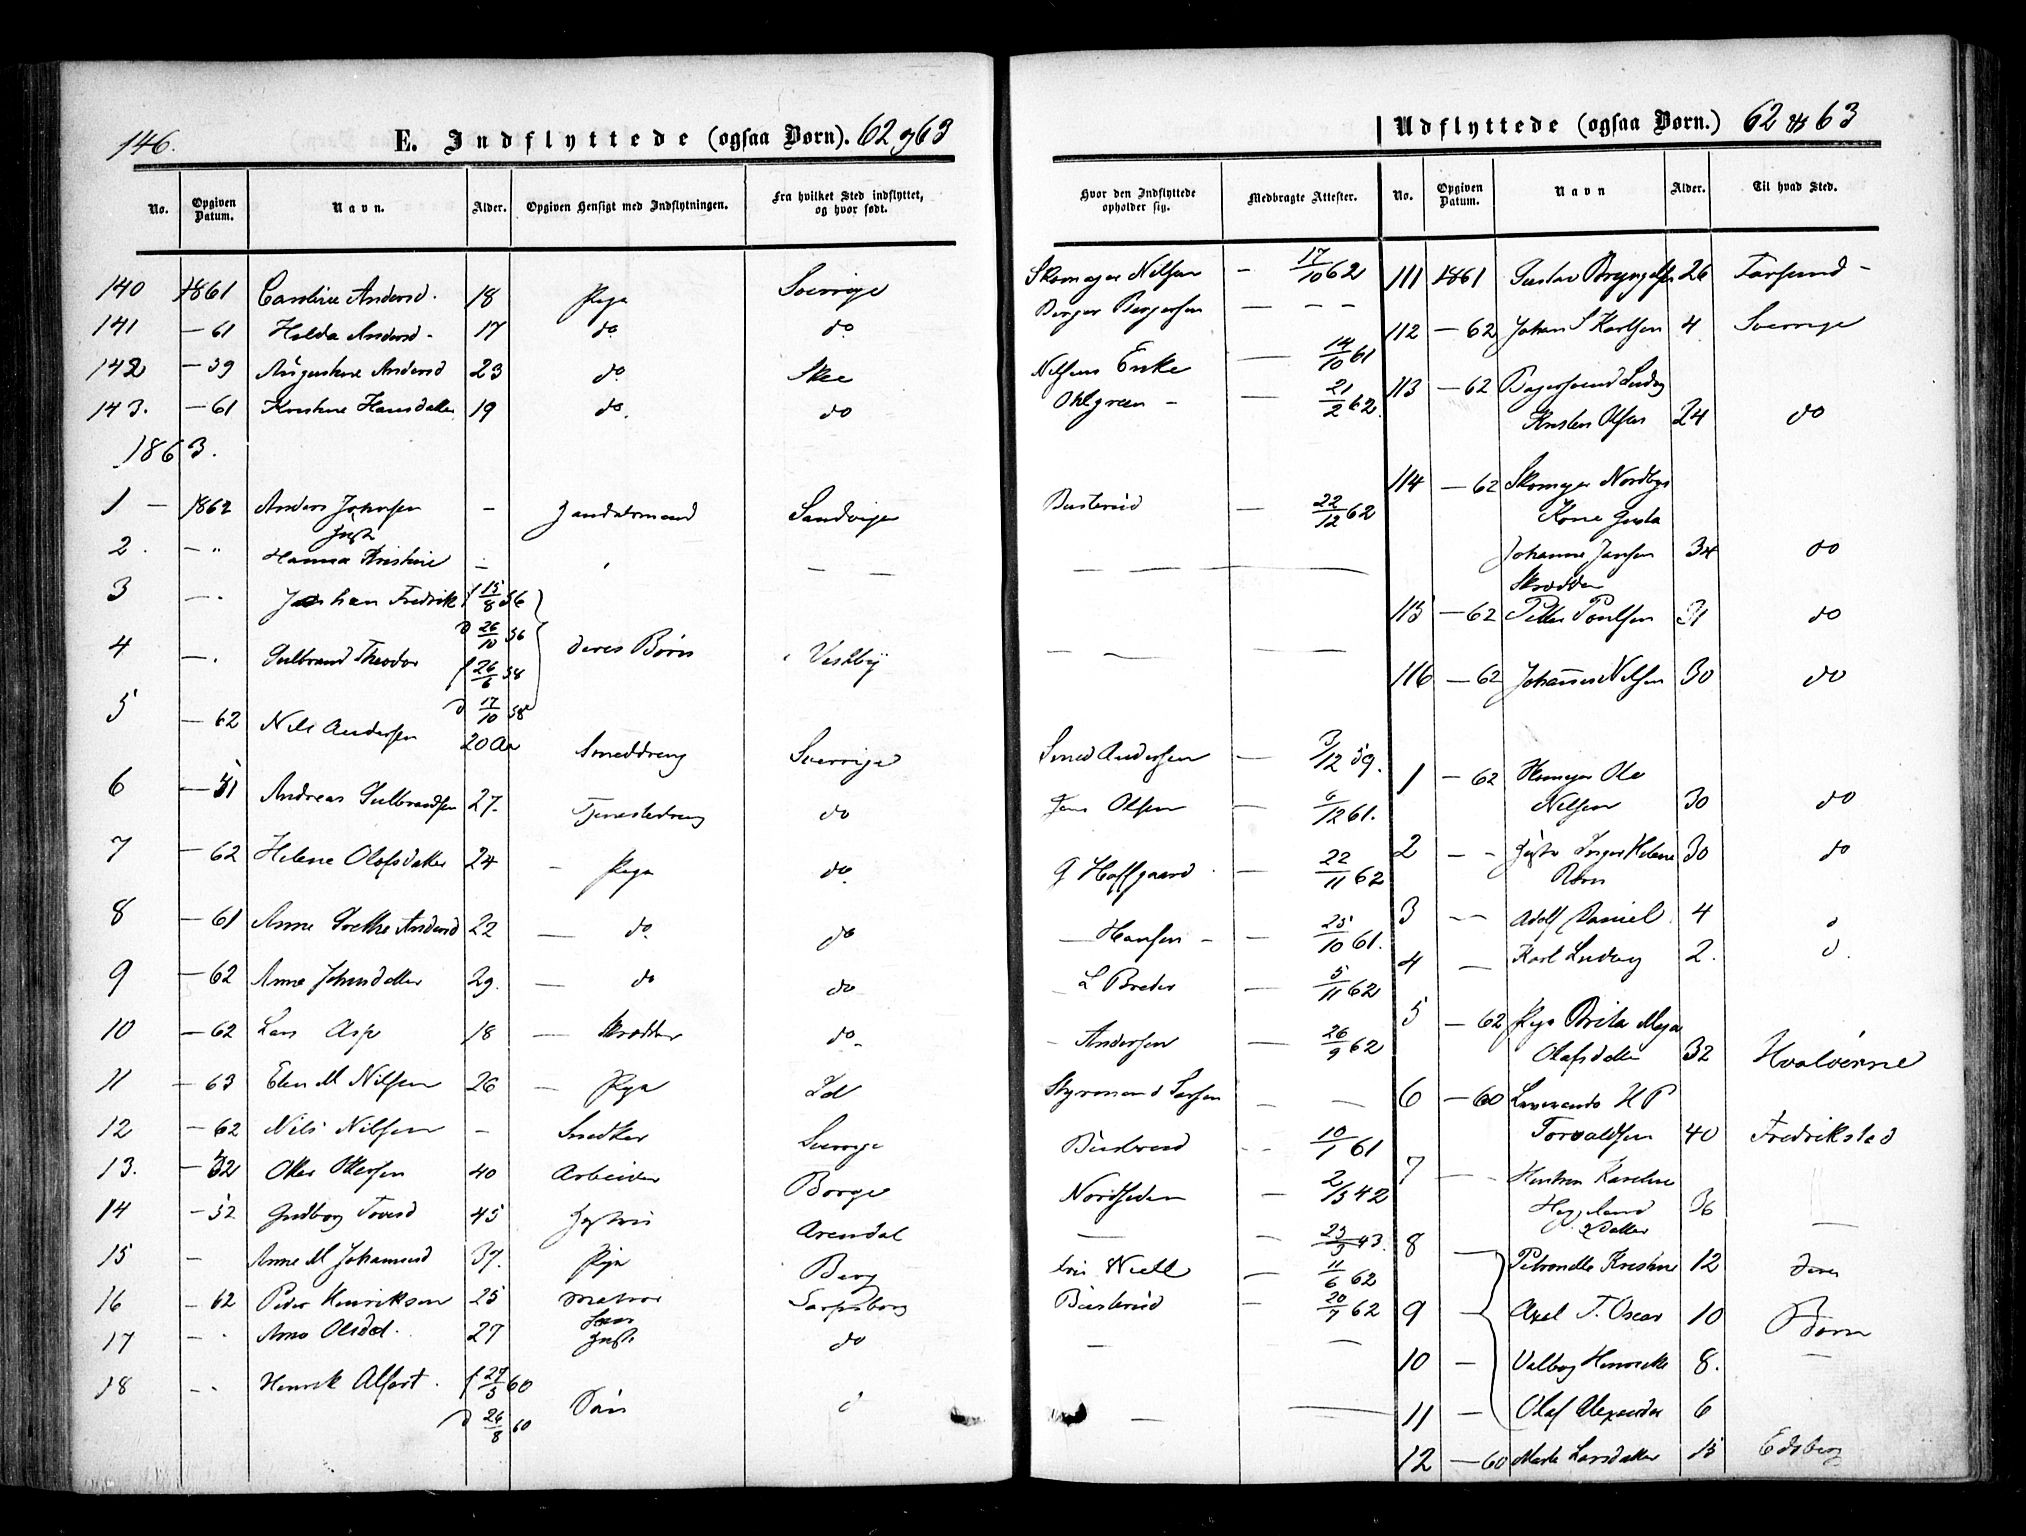 146.
E. Indflyttede (ogsaa Børn). 62 og 63
No. Opgiven Datum. Navn. Alder. Opgiven Hensigt med Indflytningen. Fra hvilket Sted indflyttet, og hvor født. Hvor den Indflyttede opholder sig. Medbragte Attester.
140 1861 Caroline Andersd. 18 Pige Sverrige Skomager Nilsen — 17/10 62
141 — 61 Hulda Andersd. 17 do do Berger Bergersen — — —
142 — 59 Augustine Andersd 23 do. Skee Nilsens Enke — 14/10 61
143. — 61 Kristine Hansdatter 19 do. do Ohlgreen — — 21/2 62.
1863.
1 — 1862 Anders Johnsen — Jandarmand Sandvigen Busterud — 22/12 62
2. — " Just. Hanna Kristine — — —
3 — . Johan Fredrik f 15/8 56 d 26/10 56
4 — . Gulbrand Theodor f 26/6 58 d 17/10 58 deres Børn Vestby — — —
5 — 62 Nils Andersen 20 Aar Smeddreng Sverrige Smed Andersen — 3/12 59.
6 — 51 Andreas Gulbrandsen 27. Tjenestedreng do Jens Olsen — 6/12 61.
7 — 62 Helene Olafsdatter 24 — Pige do. G Hoffgaard — 22/11 62
8 — 61 Anne Grethe Andersd 22 — do. do — Hansen — — 25/10 61.
9 — 62 Anne Johnsdatter 29. — do do L Breder — 5/11 62
10 — 62 Lars Asp 18 — Skrædder do. Andersen — 26/9 62
11 — 63 Elen M Nilsen 26 — Pige Id Styrmand Larsen — —
12 — 62 Nils Nilsen — Snedker Sverrige Busterud — 10/1 61
13. — 52 Otter Ottersen 40 Arbeider Borge Nordheden — 2/5 42
14 — 52 Gudborg Toresd 45 Arendal — — 23/3 43.
15 — Anne M Johannesd 37. Pige Berg — 11/6 62
16 — 62 Peder Henriksen 25 Matros Sarpsborg Busterud — 20/7 62
17 — . Anne Olsdat. 27 Just. do — —
18 — . Henrik Alfert. f 29/5 60 d 26/8 60 Børn — —
Udflyttede (ogsaa Børn.) 62 & 63
No. Opgiven Datum. Navn Alder. Til hvad Sted.
111 1861 Gustav Bryngelsen 26 Farsund —
112 — 62 Johan S Karlsen 4 Sverrige
113 — 62 Bagersvend Ludvig
Kristen Olsen 24 do
114 — 62 Skomager Nordbys
Kone Gusta
Johanne Jansen 34 do
Skrædder
115 — 62 Petter Poulsen 31 do
116 — 62 Johannes Nilsen 30 do
1 — 62 Ole
Nilsen 30 do
2 — — Inger Helene 30 do
Børn
3 — — Adolf Daniel 4
4 — Karl Ludvig 2.
5 — 62 Pige Brita Maja
Olafsdatter 32 Hvaløerne
6 — 60 H P
Torvaldsen 40 Fredriksted
7 — — Karoline
36 —
8 — Petronelle Kristine 12 deres
9 — Axel T. Oscar 10 Børn
10 — Valborg Henrikke 8. —
11 — Olaf Alexander 6
12 — 60 Marte Larsdatter 15 Edsberg